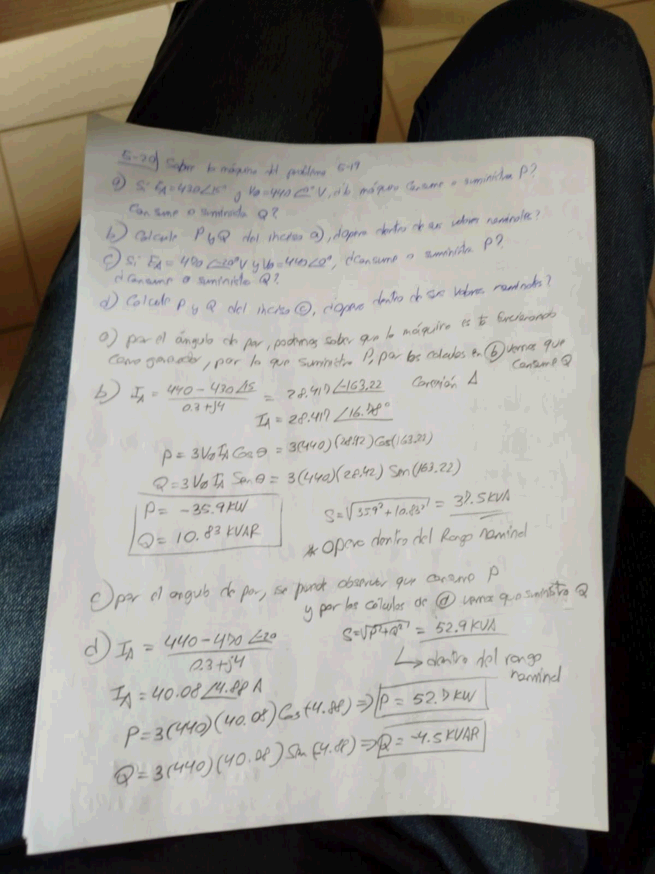 5-20) Sobre la máquina del problema 5-19
a) Si EA=430∠15° y VΦ=440∠0° V, ¿la máquina consume o suministra P?
Consume o suministra Q?
b) Calcule P y Q del inciso a), ¿opera dentro de sus valores nominales?
c) Si EA=470∠-20° V y VΦ=440∠0°, ¿consume o suministra P?
¿consume o suministra Q?
d) Calcule P y Q del inciso c, ¿opera dentro de sus valores nominales?
a) por el ángulo de par, podemos saber que la máquina está funcionando
como generador, por lo que suministra P, por los cálculos en b vemos que
consume Q
b) IA = 440 - 430∠15 / 0.3+j4 = 28.417∠-163.22 Conexión Δ
IA = 28.417∠16.78°
P=3VΦIA Cosθ = 3(440)(28.42)Cos(163.22)
Q=3VΦIA Senθ = 3(440)(28.42) Sen(163.22)
P= -35.9KW
Q= 10.83 KVAR
S=√35.9²+10.83² = 37.5KVA
* Opera dentro del Rango nominal
c) por el angulo de par, se puede observar que consume P
y por los cálculos de d vemos que suministra Q
d) IA = 440-470∠-20 / 0.3+j4
S=√P²+Q² = 52.9 KVA
↳ dentro del rango
nominal
IA = 40.08∠4.88 A
P=3(440)(40.08)Cos(-4.88) ⇒ P= 52.7 KW
Q=3(440)(40.08) Sen(-4.88) ⇒ Q= -4.5 KVAR